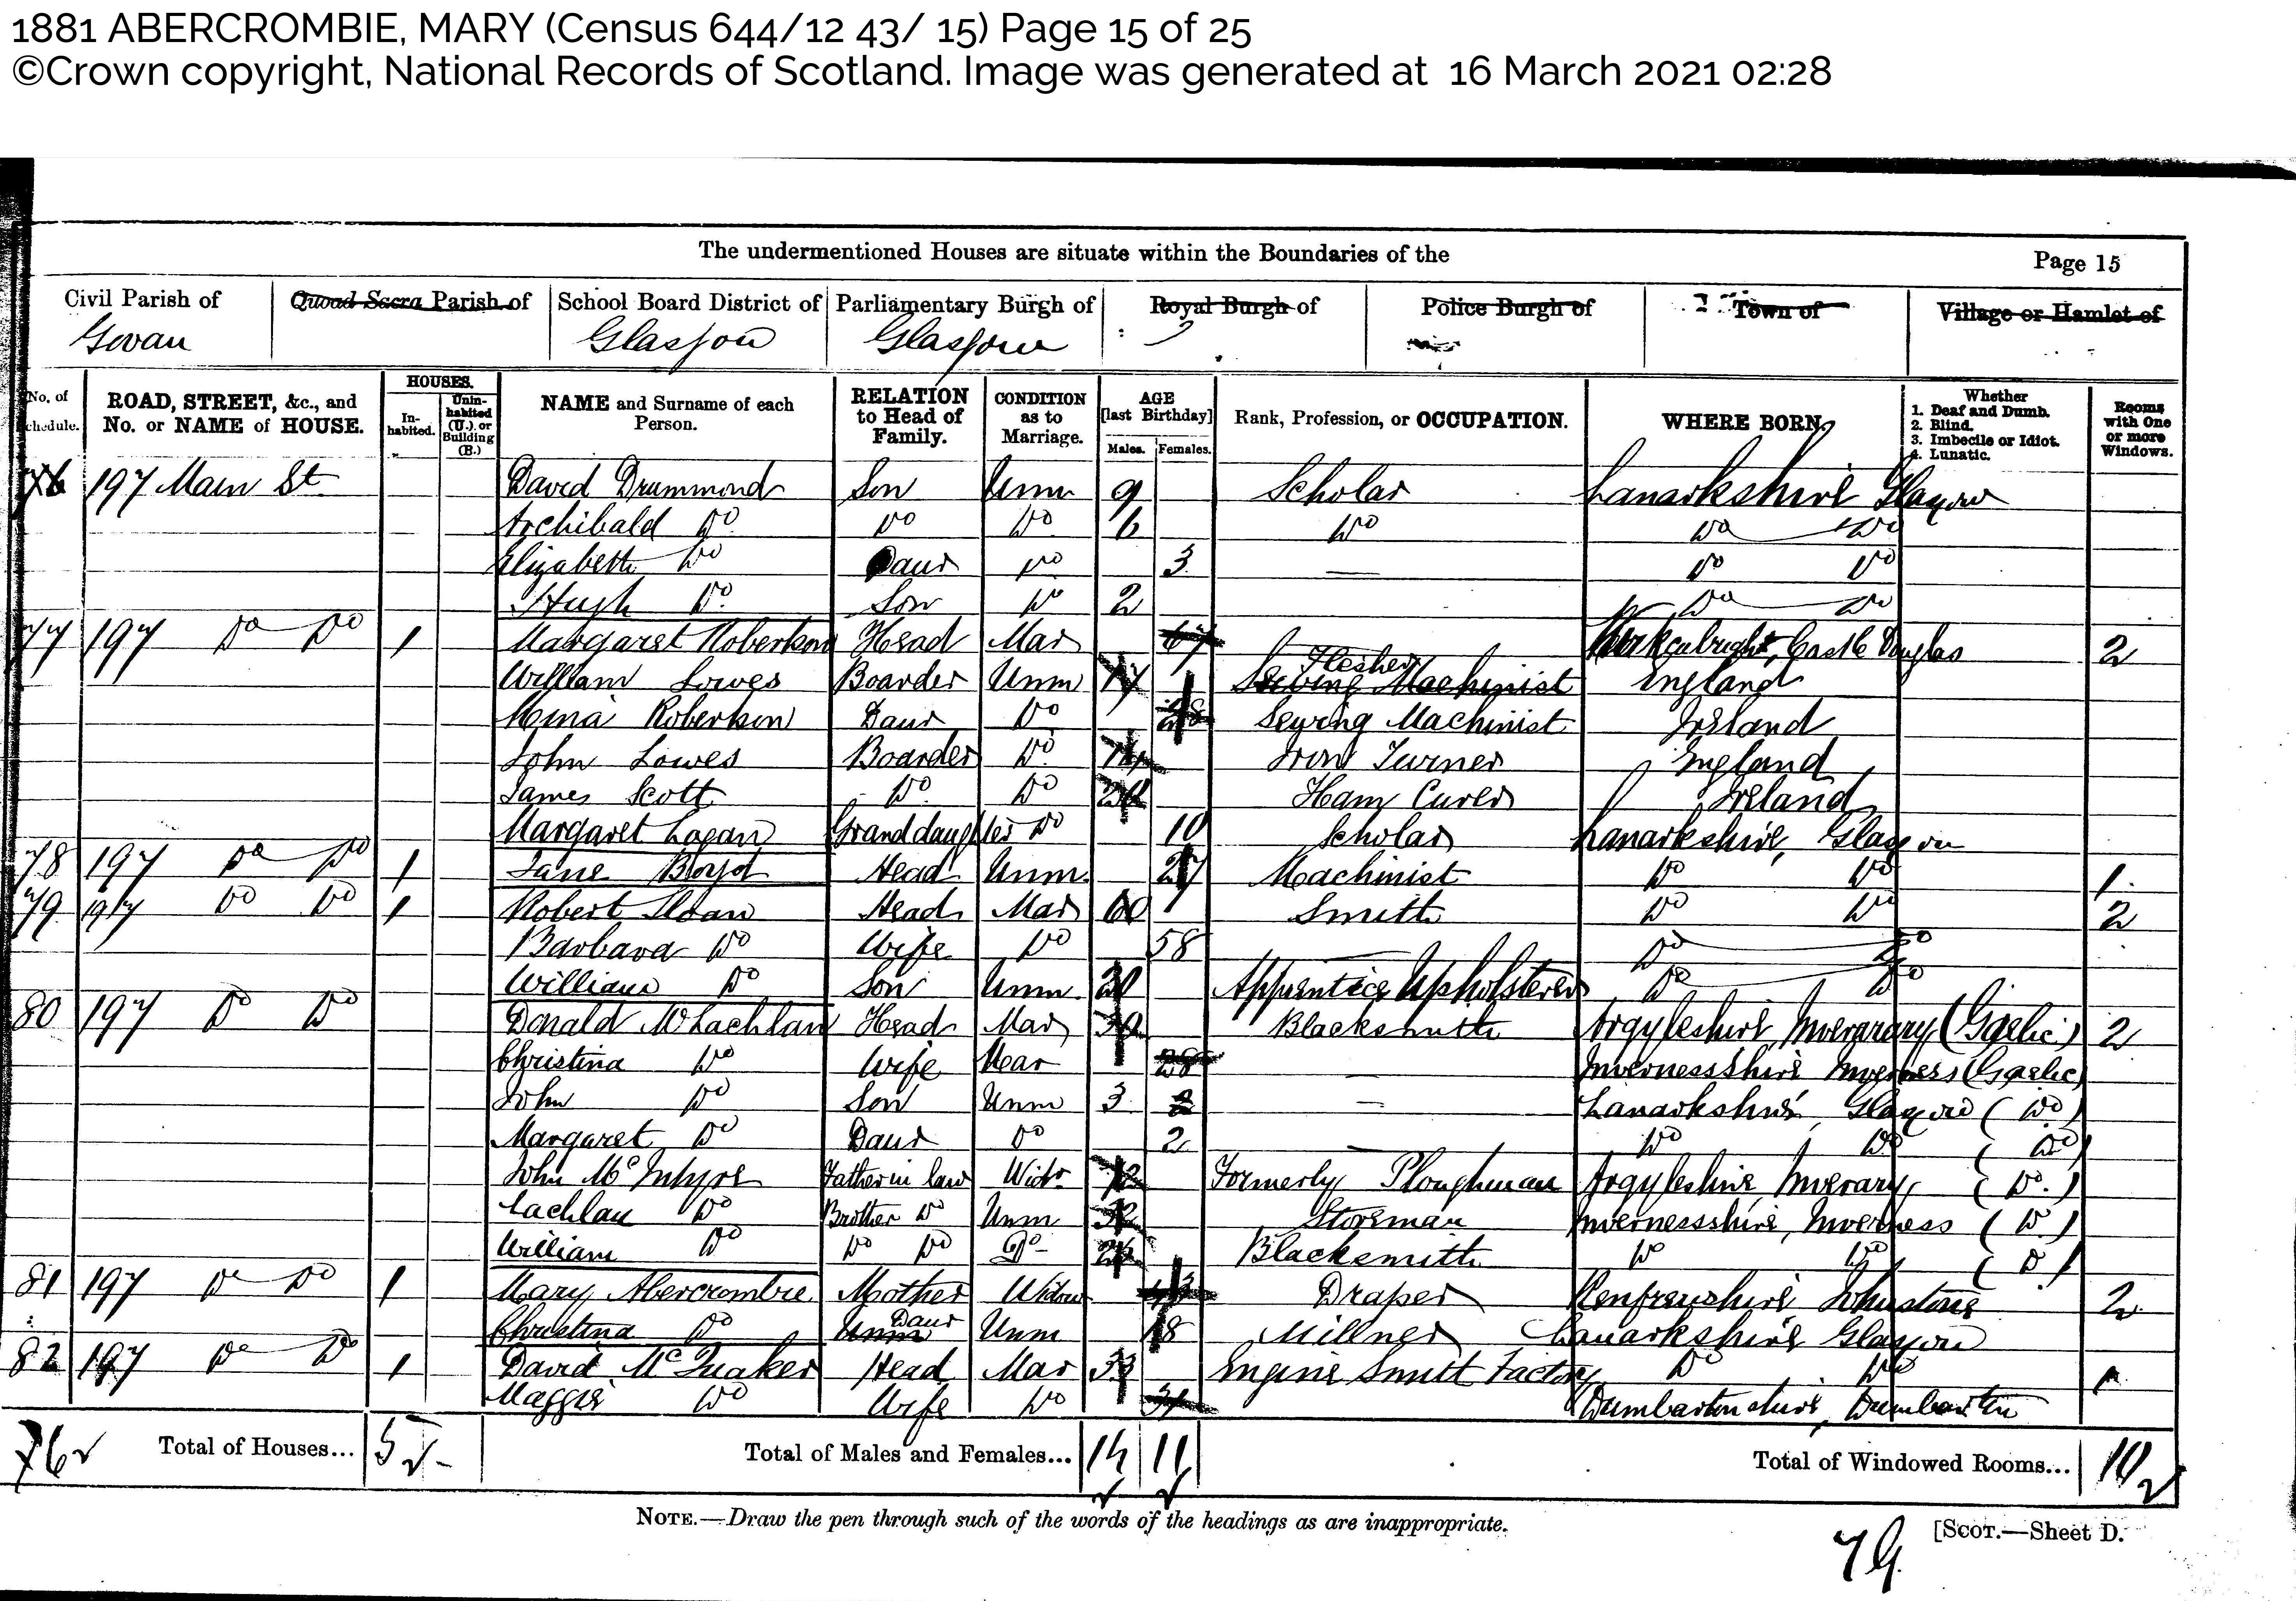 1881 ABERCROMBIE, MARY (Census 644/12 43/ 15) Page 15 of 25
©Crown copyright, National Records of Scotland. Image was generated at 16 March 2021 02:28
The undermentioned Houses are situate within the Boundaries of the Page 15
Civil Parish of Quoad Sacra Parish of School Board District of Parliamentary Burgh of Royal Burgh of Police Burgh of Town of Village or Hamlet of
Govan Glasgow Glasgow
No. of Schedule. ROAD, STREET, &c., and No. or NAME of HOUSE. HOUSES. Inhabited. Uninhabited (U.) or Building (B.) NAME and Surname of each Person. RELATION to Head of Family. CONDITION as to Marriage. AGE [last Birthday] Males. Females. Rank, Profession, or OCCUPATION. WHERE BORN. Whether 1. Deaf and Dumb. 2. Blind. 3. Imbecile or Idiot. 4. Lunatic. Rooms with One or more Windows.
76 197 Main St. David Drummond Son Unm 9 Scholar Lanarkshire Glasgow
Archibald Do Do Do 6 Do Do Do
Elizabeth Do Daur Do 3 — Do Do
Hugh Do Son Do 2 Do Do
77 197 Do Do 1 Margaret Robertson Head Mar 67 Kirkcubright, Castle Douglas 2
William Lowes Boarder Unm 17 Sewing Machinist Flesher England
Mina Robertson Daur Do 28 Sewing Machinist Ireland
John Lowes Boarder Do Iron Turner England
James Scott Do Do Ham Curer Ireland
Margaret Logan Granddaughter Do 10 Scholar Lanarkshire, Glasgow
78 197 Do Do 1 Jane Boyd Head Unm. 27 Machinist Do Do 1
79 197 Do Do 1 Robert Sloan Head Mar 60 Smith Do Do 2
Barbara Do Wife Do 58 — Do Do
William Do Son Unm. 20 Apprentice Upholsterer Do Do
80 197 Do Do Donald McLachlan Head Mar 30 Blacksmith Argyleshire, Inverarary (Gaelic) 2
Christina Do Wife Mar 28 — Invernessshire Inverness (Gaelic)
John Do Son Unm 3 — Lanarkshire, Glasgow (Do)
Margaret Do Daur Do 2 — Do Do (Do)
John McIntyre Father in law Widr 72 Formerly Ploughman Argyleshire, Inverary (Do.)
Lachlan Do Brother Do Unm 32 Storeman Invernessshire, Inverness (Do)
William Do Do Do Do Blacksmith Do Do (Do)
81 197 Do Do 1 Mary Abercrombie Mother Widow Draper Renfrewshire Johnstone 2
Christina Do Unm Daur Unm 18 Millner Lanarkshire Glasgow
82 197 Do Do 1 David McQuaker Head Mar 33 Engine Smith Factory Do Do 1
Maggie Do Wife Do 31 Dumbartonshire, Dumbarton
Total of Houses... 5 Total of Males and Females... 14 11 Total of Windowed Rooms... 10
NOTE.—Draw the pen through such of the words of the headings as are inappropriate.
[SCOT.—Sheet D.